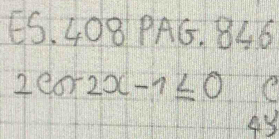 ES. 408 PAG. 846
2cos2x-1≤0